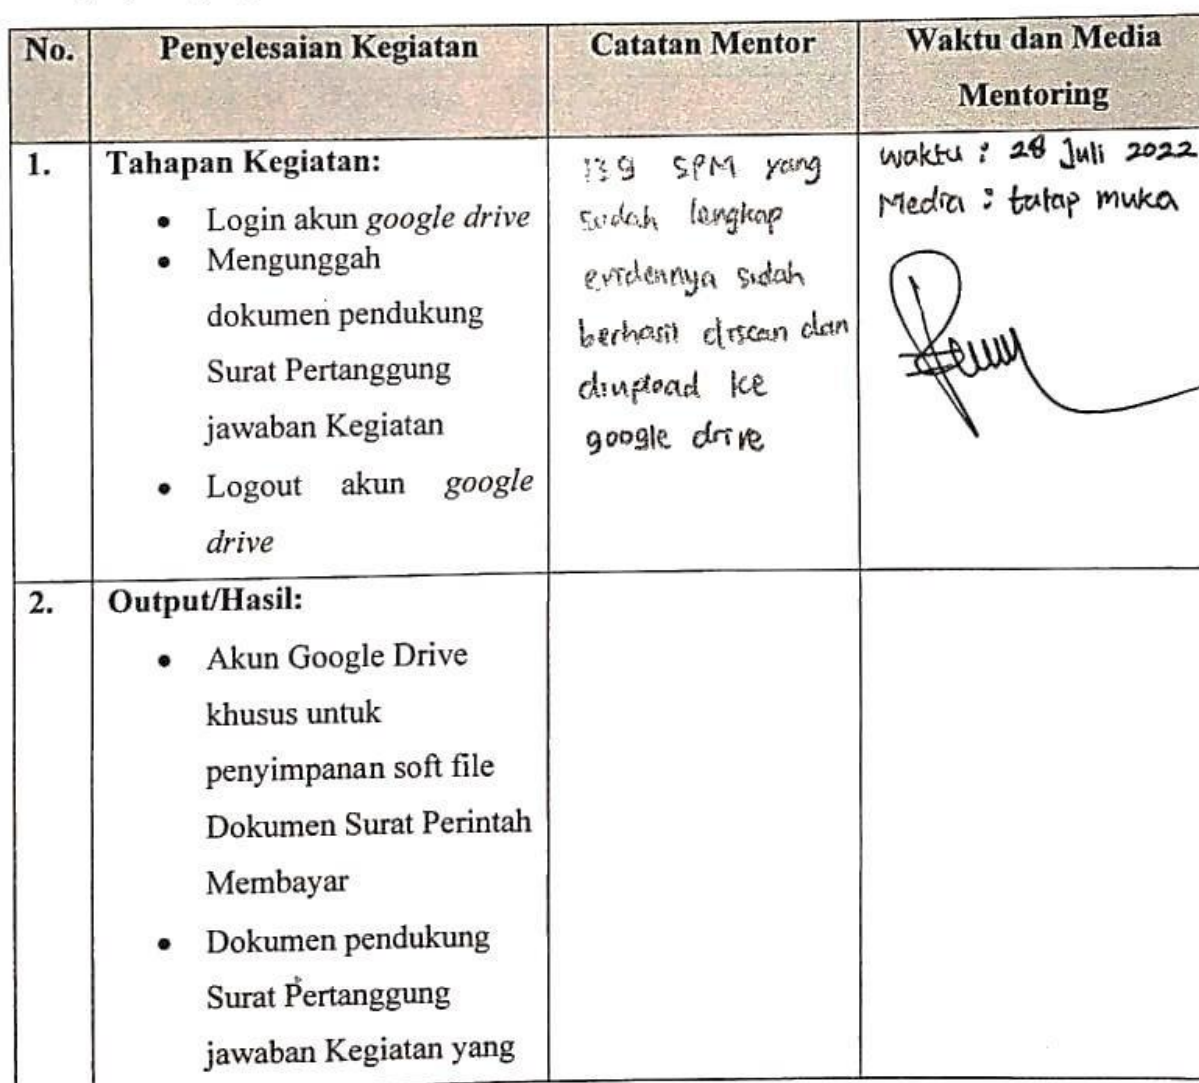 No.
Penyelesaian Kegiatan
Catatan Mentor
Waktu dan Media
Mentoring
1.
Tahapan Kegiatan:
• Login akun google drive
• Mengunggah
dokumen pendukung
Surat Pertanggung
jawaban Kegiatan
• Logout akun google
drive
139 SPM yang
sudah lengkap
evidennya sudah
berhasil discan dan
diupload ke
google drive
Waktu : 28 Juli 2022
Media : tatap muka
2.
Output/Hasil:
• Akun Google Drive
khusus untuk
penyimpanan soft file
Dokumen Surat Perintah
Membayar
• Dokumen pendukung
Surat Pertanggung
jawaban Kegiatan yang